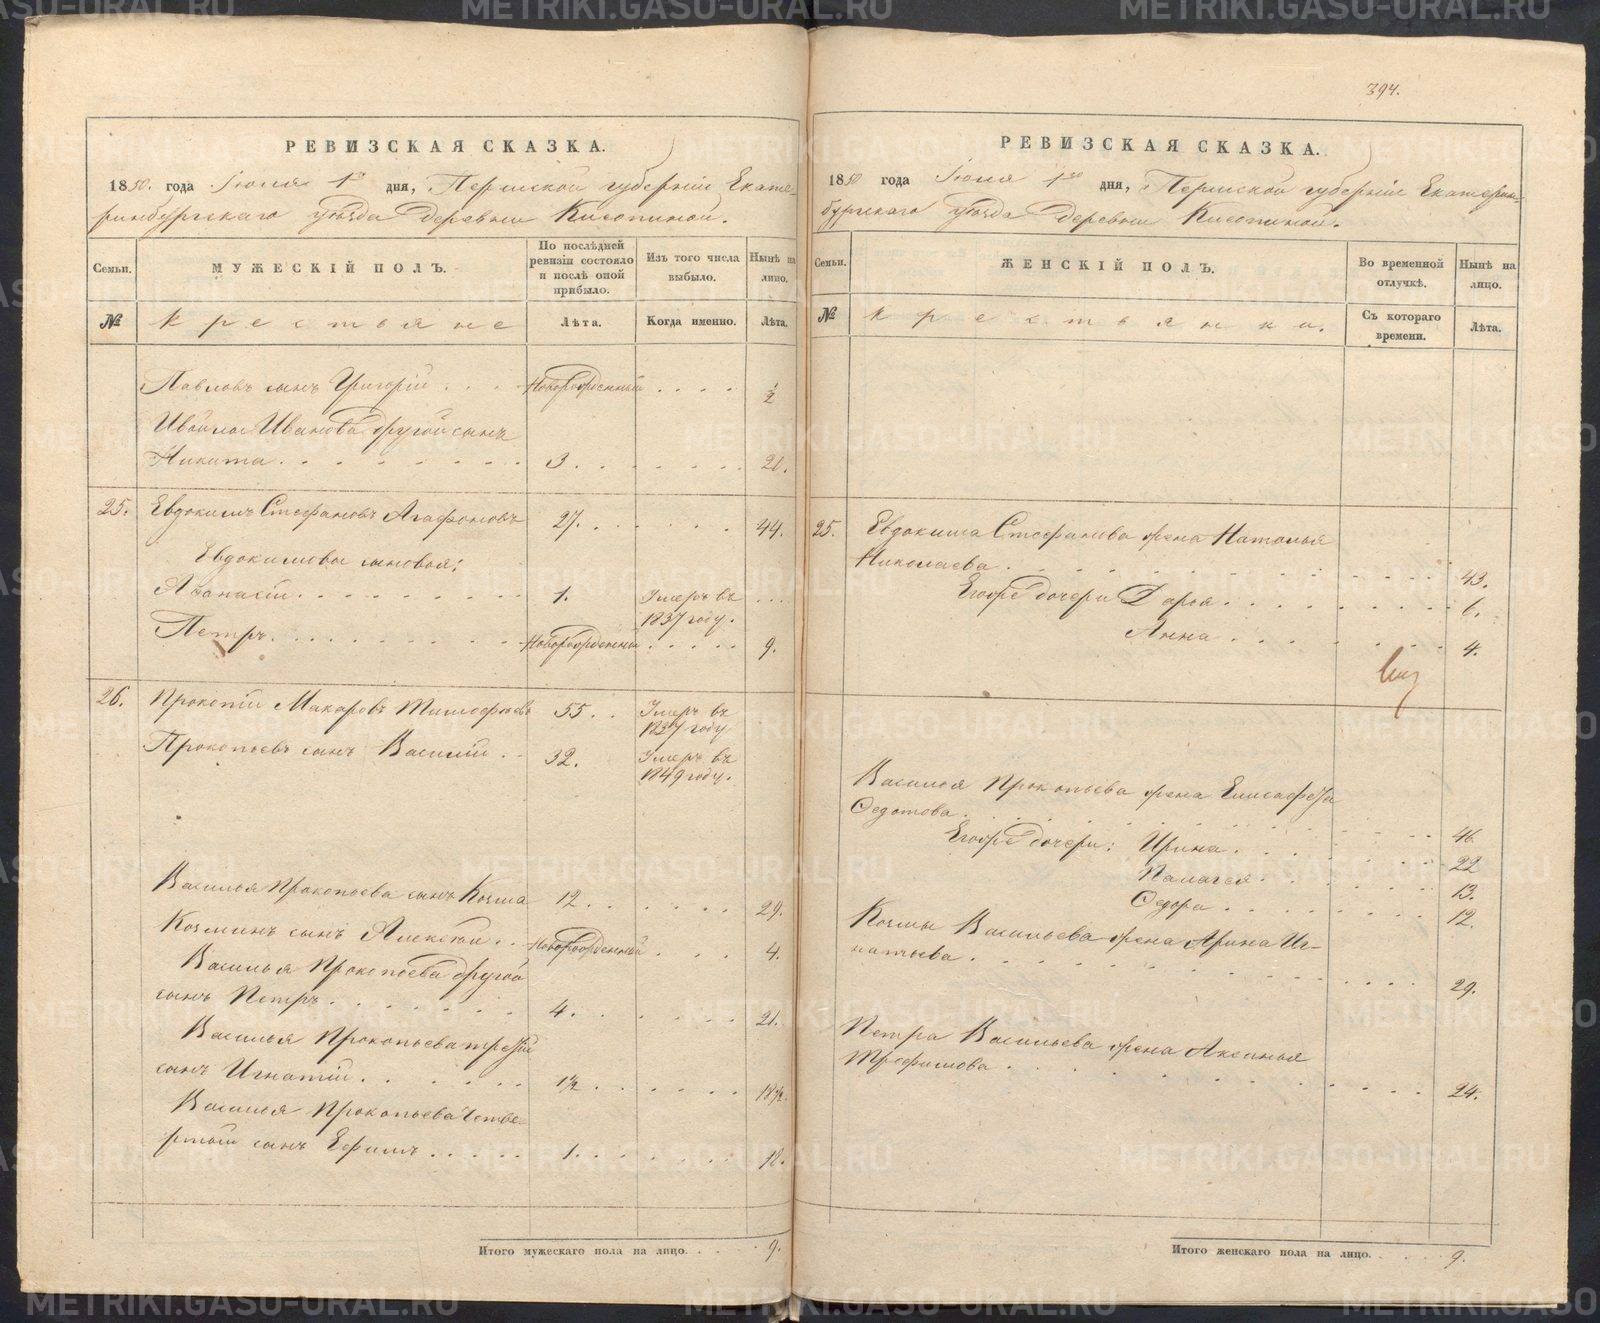 394.
РЕВИЗСКАЯ СКАЗКА.
1850. года Іюня 1го дня, Пермской губерніи Екате-
ринбургскаго уѣзда деревни
Семьи.
МУЖЕСКІЙ ПОЛЪ.
По послѣдней ревизіи состояло и послѣ оной прибыло.
Изъ того числа выбыло.
Нынѣ на лицо.
№
Крестьяне
Лѣта.
Когда именно.
Лѣта.
Павловъ сынъ Григорій . . . Новорожденный . . . . ½
Ивана другой сынъ
Никита . . . . . . . 3 . . . . . . . 21.
25. Евдокимъ Стефановъ Агафоновъ 27. . . . . . . 44.
Евдокимовы сыновья:
Афанасій . . . . . . . . 1. Умеръ въ . . .
1837 году.
Петръ . . . . . . . . . Новорожденный . . . . . 9.
26. Прокопій Макаровъ Тимофѣевъ 55 . . Умеръ въ
1837 году
Прокопьевъ сынъ Василій . . 32. Умеръ въ
1849 году.
Василья Прокопьева сынъ Козма 12 . . . . . . 29.
Козминъ сынъ Алексѣй . . Новорожденный . . . 4.
Василья Прокопьева другой
сынъ Петръ . . . . . . 4. . . . . . . 21.
Василья Прокопьева третій
сынъ Игнатій . . . . . . 1½ . . . . . . 18½.
Василья Прокопьева четве-
ртый сынъ Ефимъ . . . . . 1. . . . . . . . 18.
Итого мужескаго пола на лицо. . . . . 9.
РЕВИЗСКАЯ СКАЗКА.
1850 года Іюня 1го дня, Пермской губерніи Екатерин-
бургскаго уѣзда деревни
Семьи.
ЖЕНСКІЙ ПОЛЪ.
Во временной отлучкѣ.
Нынѣ на лицо.
№
Крестьянки.
Съ котораго времени.
Лѣта.
25. Евдокима Стефанова жена Наталья
Николаева . . . . . . . . . . . . 43.
Егожъ дочери Дарья . . . . . . . . . 6.
Анна . . . . . . . . 4.
Василья Прокопьева жена Елисафета
Федотова . . . . . . . . . . . . 46.
Егожъ дочери: Ирина . . . . . . . . 22
Палагея . . . . . . . 13.
Федора . . . . . . . . 12.
Козмы Васильева жена Арина Иг-
натьева . . . . . . . . . . . . 29.
Петра Васильева жена Аксинья
Трофимова . . . . . . . . . . . 24.
Итого женскаго пола на лицо. . . . . 9.
METRIKI.GASO-URAL.RU